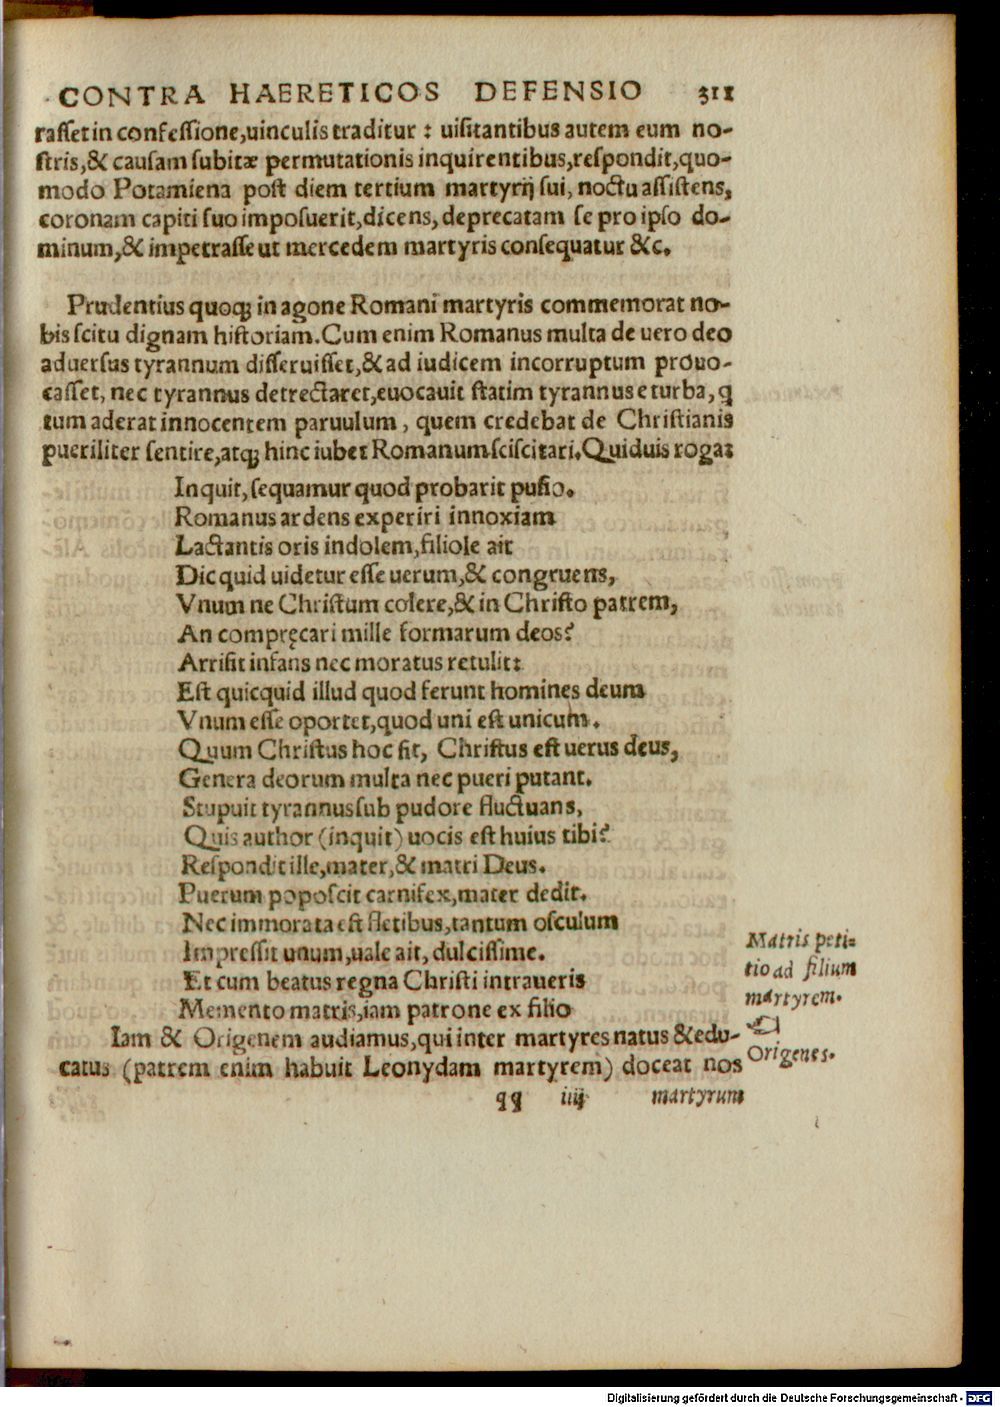 CONTRA HAERETICOS DEFENSIO 311
rasset in confessione, uinculis traditur: uisitantibus autem eum no-
stris, & causam subitæ permutationis inquirentibus, respondit, quo-
modo Potamiena post diem tertium martyrij sui, noctu assistens,
coronam capiti suo imposuerit, dicens, deprecatam se pro ipso do-
minum, & impetrasse ut mercedem martyris consequatur &c.
Prudentius quoq; in agone Romani martyris commemorat no-
bis scitu dignam historiam. Cum enim Romanus multa de uero deo
aduersus tyrannum disseruisset, & ad iudicem incorruptum prouo-
casset, nec tyrannus detrectaret, euocauit statim tyrannus e turba, q̃
tum aderat innocentem paruulum, quem credebat de Christianis
pueriliter sentire, atq; hinc iubet Romanum sciscitari. Quiduis roga:
Inquit, sequamur quod probarit pusio.
Romanus ardens experiri innoxiam
Lactantis oris indolem, filiole ait
Dic quid uidetur esse uerum, & congruens,
Vnum ne Christum colere, & in Christo patrem,
An compręcari mille formarum deos?
Arrisit infans nec moratus retulit:
Est quicquid illud quod ferunt homines deum
Vnum esse oportet, quod uni est unicum.
Quum Christus hoc sit, Christus est uerus deus,
Genera deorum multa nec pueri putant.
Stupuit tyrannus sub pudore fluctuans,
Quis author (inquit) uocis est huius tibi?
Respondit ille, mater, & matri Deus.
Puerum poposcit carnifex, mater dedit.
Nec immorata est fletibus, tantum osculum
Impressit unum, uale ait, dulcissime.
Et cum beatus regna Christi intraueris
Memento matris, iam patrone ex filio
Matris peti=
tio ad filium
martyrem.
Iam & Origenem audiamus, qui inter martyres natus & edu-
catus (patrem enim habuit Leonydam martyrem) doceat nos
Origenes.
qq iiij martyrum
Digitalisierung gefördert durch die Deutsche Forschungsgemeinschaft - DFG